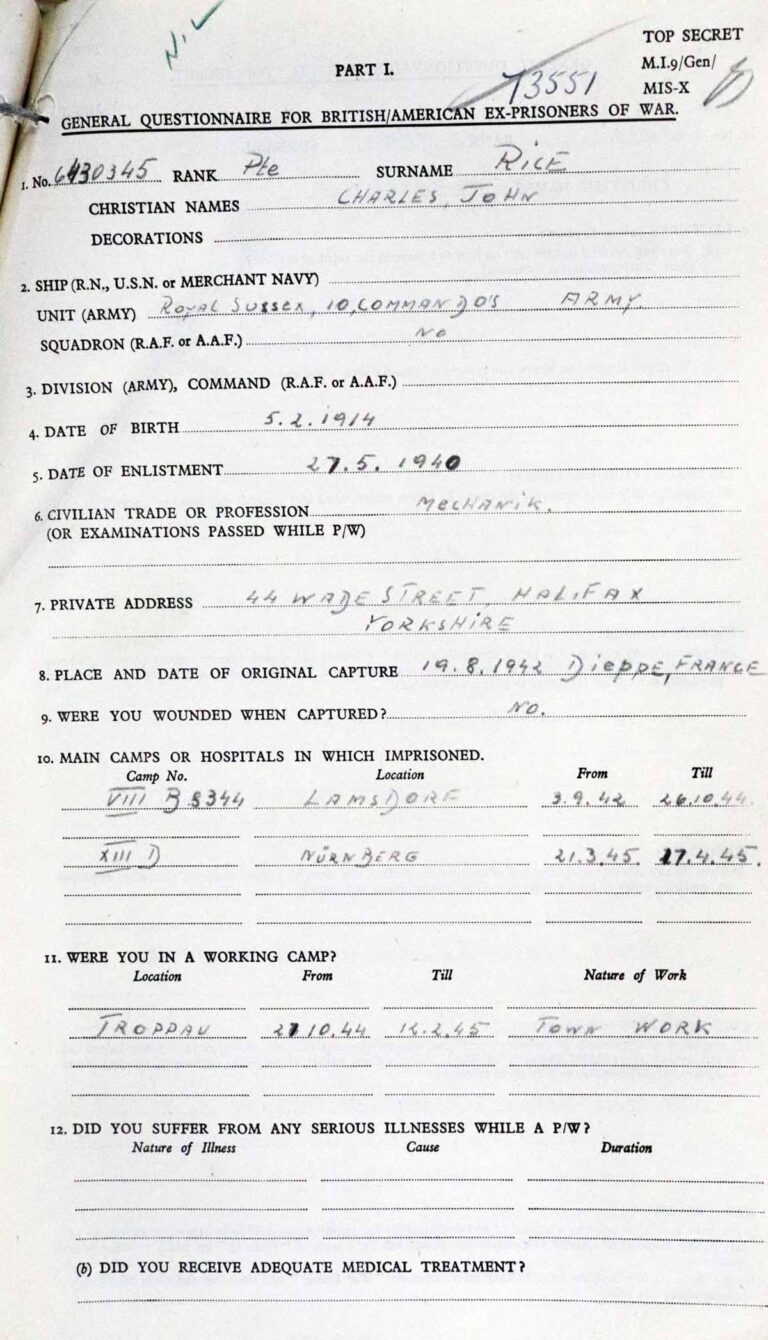 N.L
TOP SECRET
PART I.
M.I.9/Gen/
73551
MIS-X
GENERAL QUESTIONNAIRE FOR BRITISH/AMERICAN EX-PRISONERS OF WAR.
1. No. 6430345 RANK Pte SURNAME RICE
CHRISTIAN NAMES CHARLES, JOHN
DECORATIONS
2. SHIP (R.N., U.S.N. or MERCHANT NAVY)
UNIT (ARMY) ROYAL SUSSEX, 10, COMMANDO'S ARMY.
SQUADRON (R.A.F. or A.A.F.) NO
3. DIVISION (ARMY), COMMAND (R.A.F. or A.A.F.)
4. DATE OF BIRTH 5.2.1914
5. DATE OF ENLISTMENT 27.5.1940
6. CIVILIAN TRADE OR PROFESSION MECHANIK.
(OR EXAMINATIONS PASSED WHILE P/W)
7. PRIVATE ADDRESS 44 WADE STREET, HALIFAX
YORKSHIRE
8. PLACE AND DATE OF ORIGINAL CAPTURE 19.8.1942 DIEPPE, FRANCE
9. WERE YOU WOUNDED WHEN CAPTURED? NO.
10. MAIN CAMPS OR HOSPITALS IN WHICH IMPRISONED.
Camp No. Location From Till
VIII B 344 LAMSDORF 3.9.42 26.10.44.
XIII D NÜRNBERG 21.3.45. 17.4.45.
11. WERE YOU IN A WORKING CAMP?
Location From Till Nature of Work
TROPPAU 27 10.44 12.2.45 TOWN WORK
12. DID YOU SUFFER FROM ANY SERIOUS ILLNESSES WHILE A P/W?
Nature of Illness Cause Duration
(b) DID YOU RECEIVE ADEQUATE MEDICAL TREATMENT?